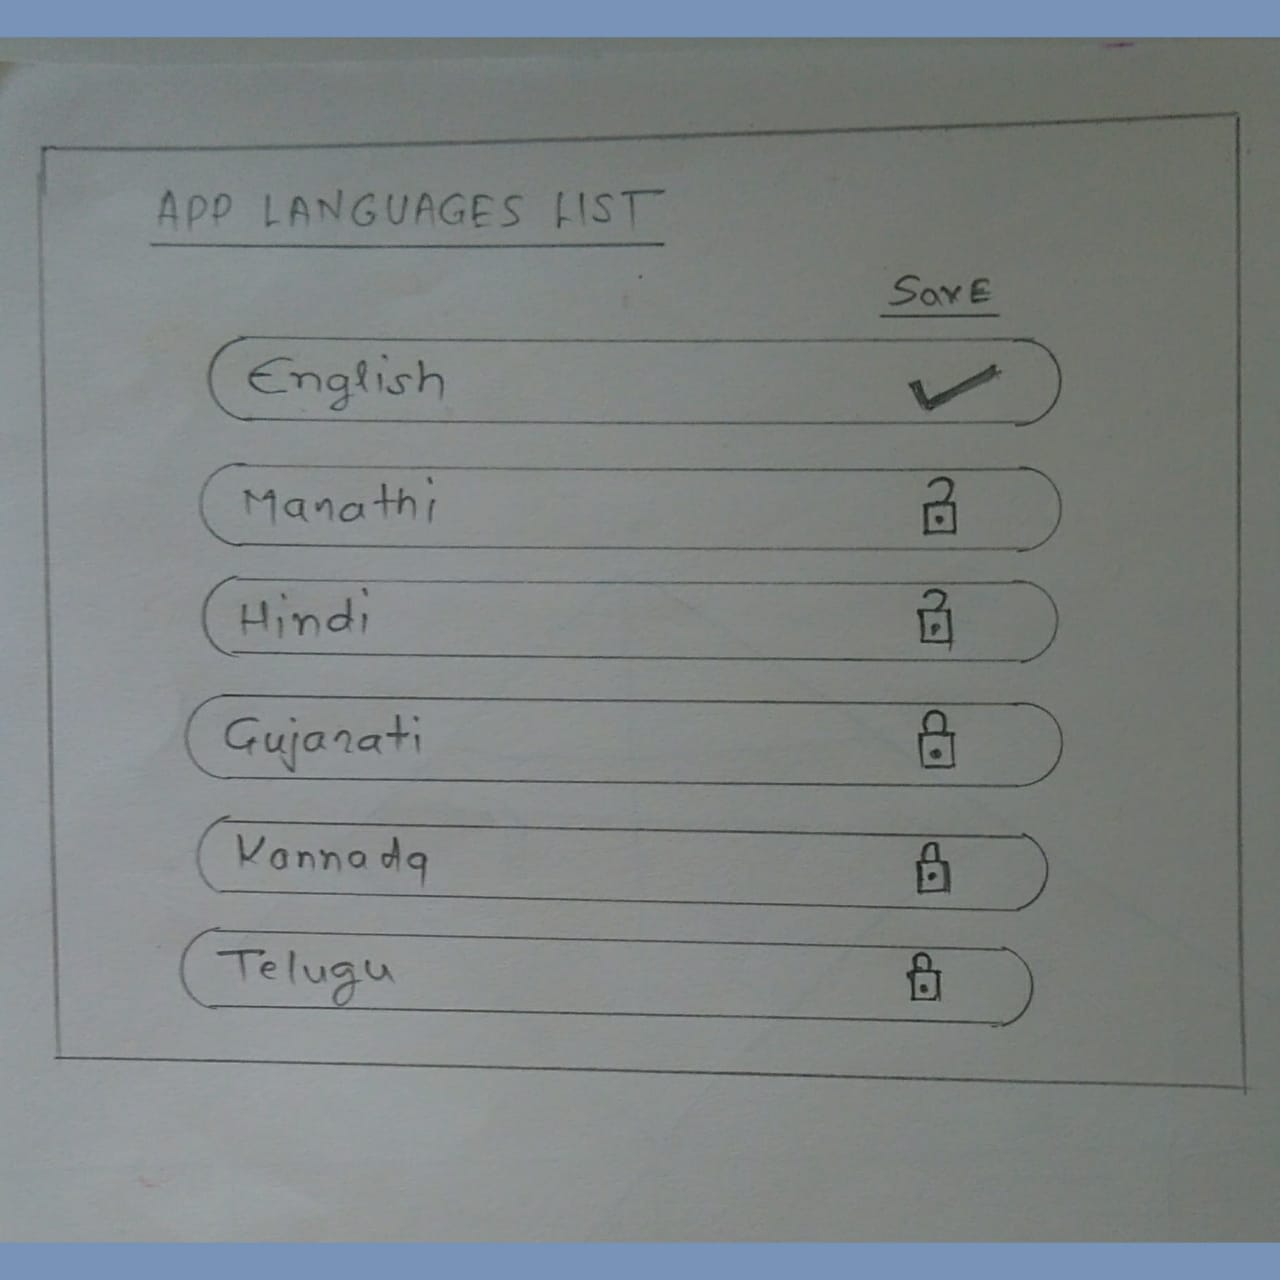 APP LANGUAGES LIST
SavE
English
Marathi
Hindi
Gujarati
Kannada
Telugu